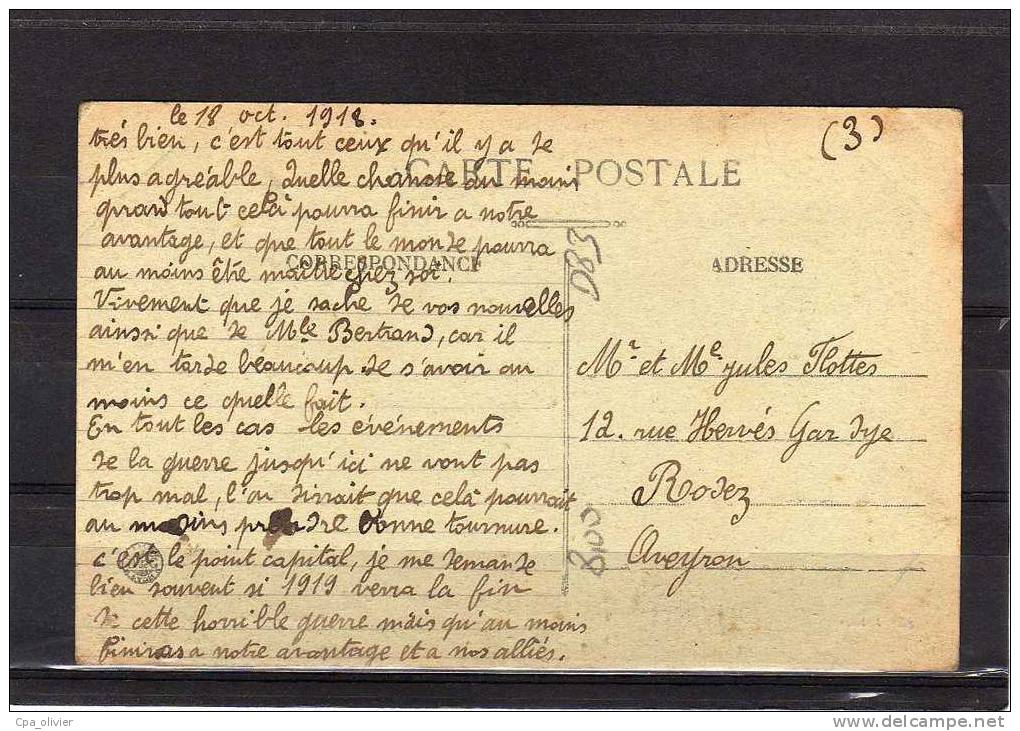 le 18 oct. 1918.
(3)
très bien, c'est tout ceux qu'il y a de
CARTE POSTALE
plus agréable, Quelle chance au moins
quand tout celà pourra finir a notre
avantage, et que tout le monde pourra
CORRESPONDANCE
au moins être maitre chez soi.
Vivement que je sache de vos nouvelles
ainsi que de Mlle Bertrand, car il
m'en tarde beaucoup de s'avoir au
moins ce quelle fait.
En tout les cas les événements
de la guerre jusqu'ici ne vont pas
trop mal, l'on dirrait que celà pourrait
au moins prendre bonne tournure.
c'est le point capital, je me demande
bien souvent si 1919 verra la fin
de cette horrible guerre mais qu'au moins
finiras a notre avantage et a nos alliés.
D83
800
ADRESSE
Mr et Me jules Flottes
12. rue Hervés Gardye
Rodez
Aveyron
Cpa_olivier
www.delcampe.net